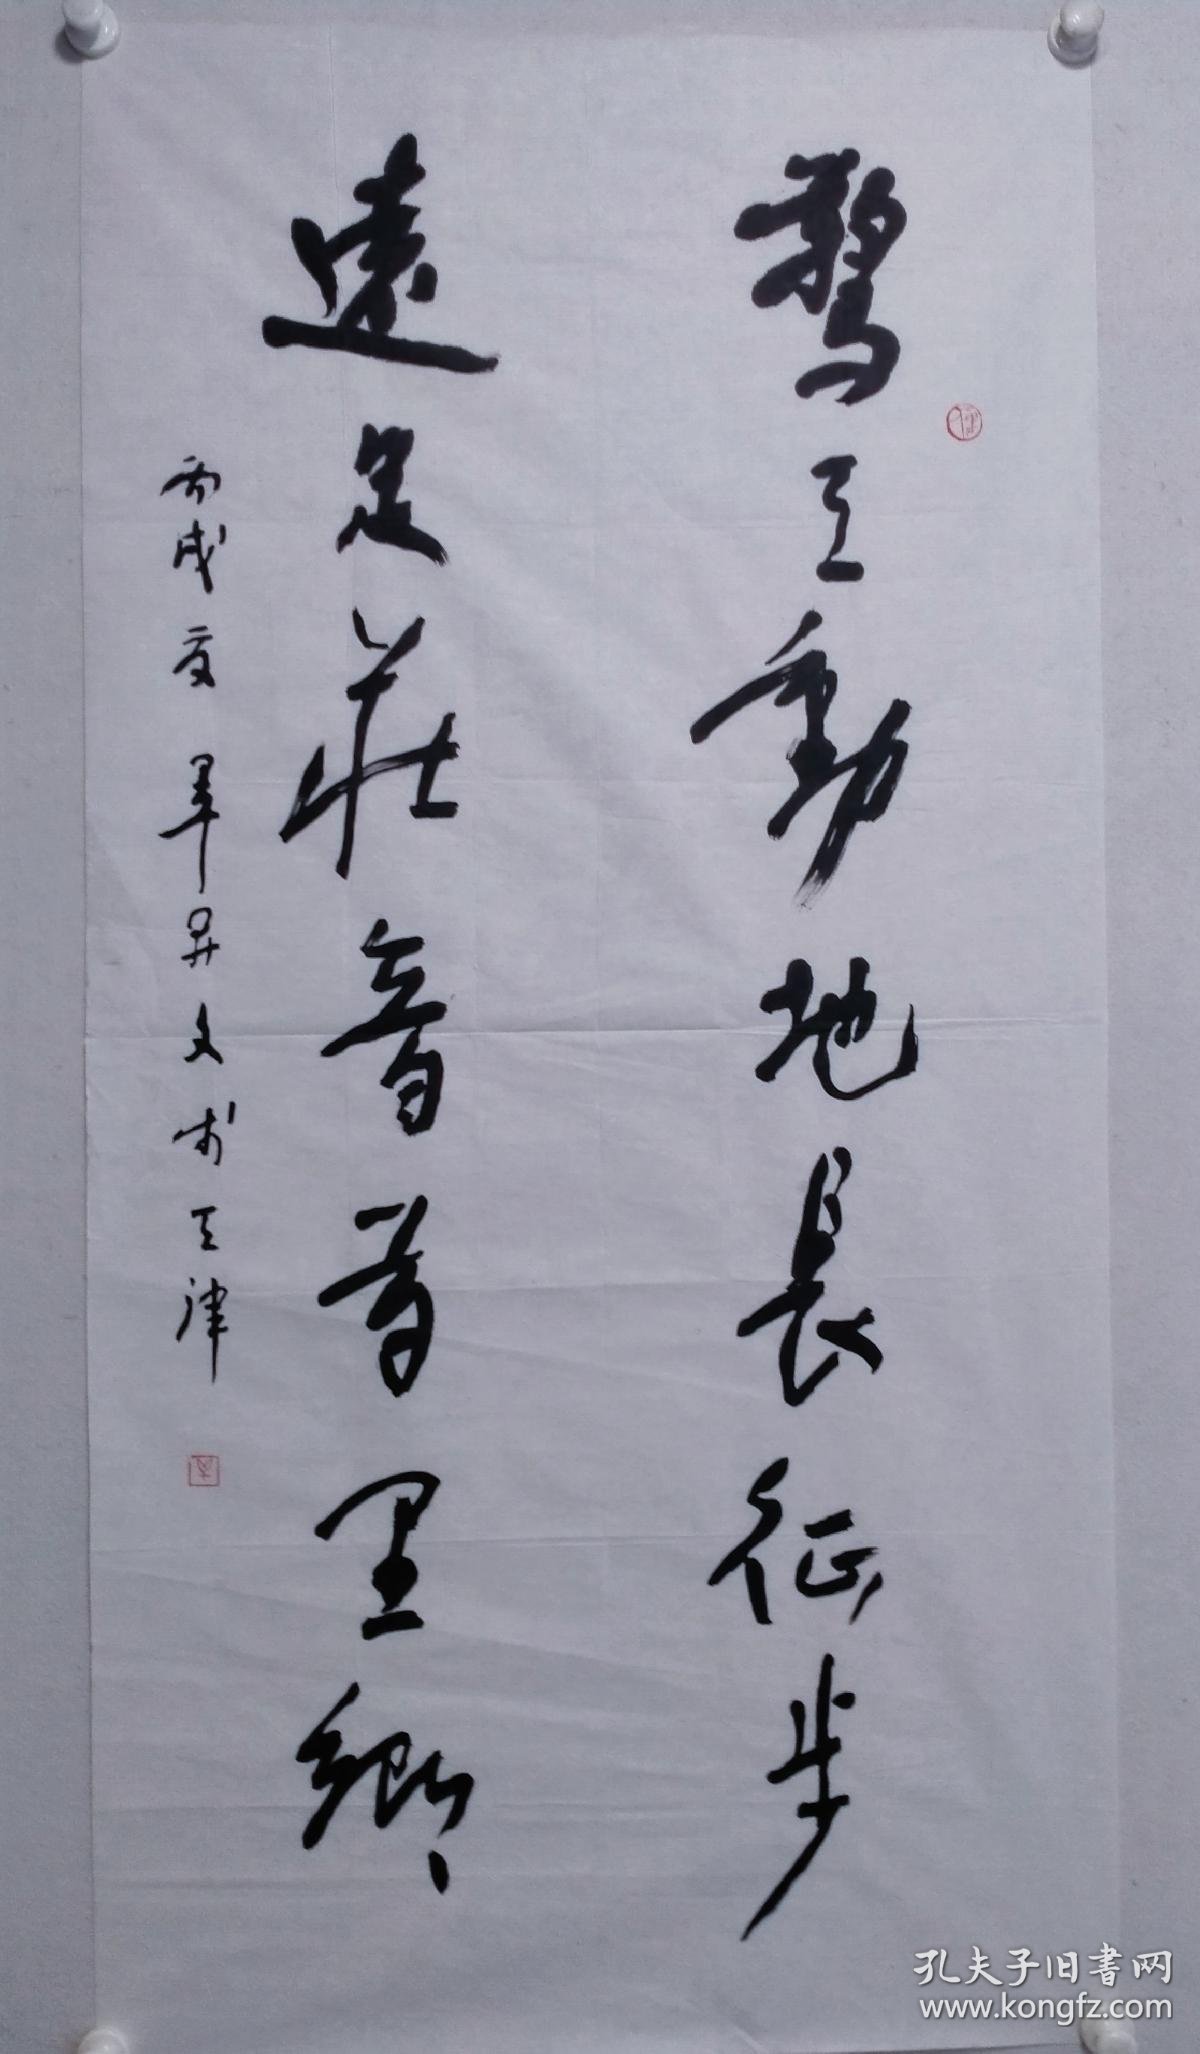 驚天動地長征步
遠足莊音首里鄉
丙戌夏 羋昇文於天津
孔夫子旧書网
www.kongfz.com